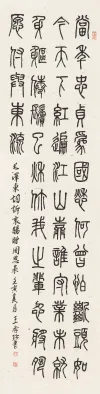 當年忠貞爲國愁何曾怕斷頭如
今天下紅遍江山靠誰守業未就
身軀倦鬢已秋你我之輩忍將夙
願付與東流
毛澤東詞訴衷情贈周恩來 壬寅夏月王